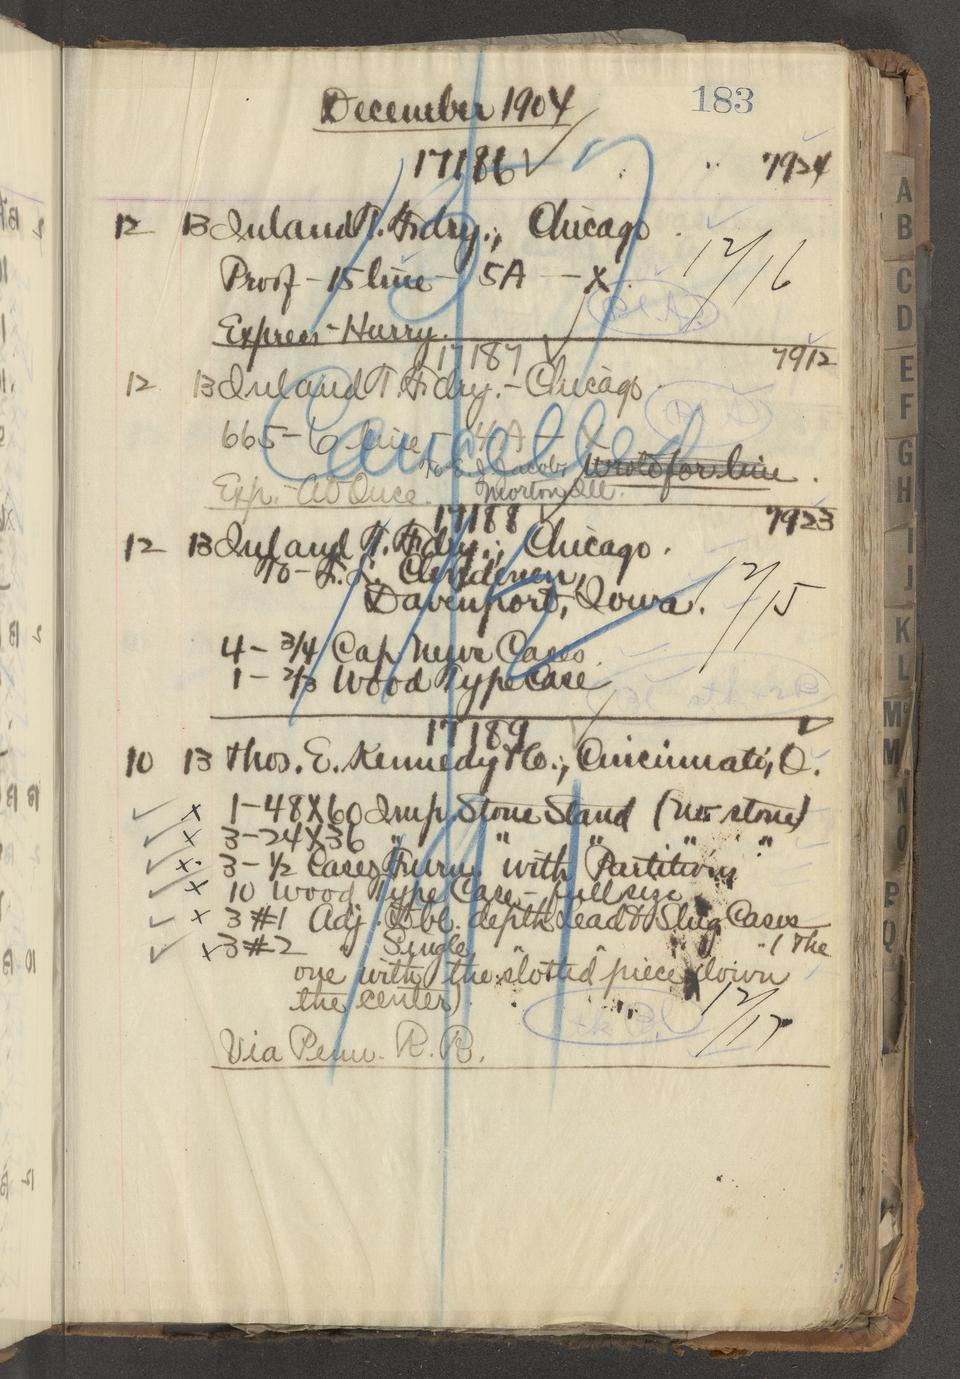 183
December 1904
17186 7924
12 13 Inland T. Fdry., Chicago
Proof - 15 line - 5A - X 12/16
Express - Hurry.
17187 7912
12 13 Inland T. Fdry. - Chicago
665 - 6 line - 4A - X
Cancelled
To E. J. Jacobs Wrote for line
Exp. - At Once. Morton Ill.
17188 7923
12 13 Inland T. Fdry., Chicago.
To - F. L. Clendenen,
Davenport, Iowa. 12/15
4 - 3/4 Cap Cases
1 - 2/3 Wood Type Case
17189
10 13 Thos. E. Kennedy & Co., Cincinnati, O.
x 1 - 48X60 Imp. Stone Stand (no stone)
x 3 - 24X36 " " " "
x 3 - 1/2 Cases Furn. with Partitions
x 10 Wood Type Case - full size
x 3 #1 Adj. Dbl. depth Lead & Slug Cases
x 3 #2 " Single " " " (The
one with the slotted piece down
the center). 12/17
Via Penn. R. R.
A
B
C
D
E
F
G
H
I
J
K
L
M
M
N
O
P
Q